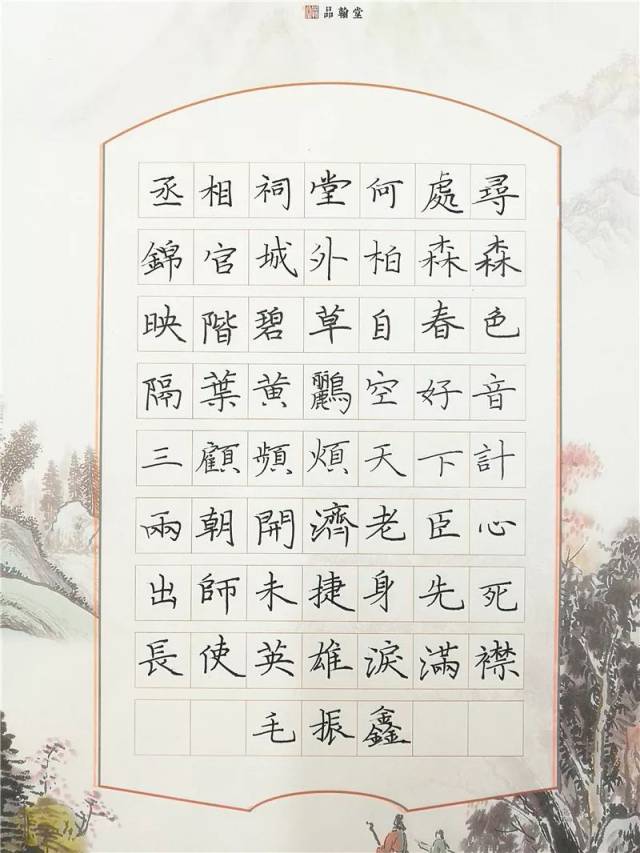 品翰堂
丞相祠堂何處尋
錦官城外柏森森
映階碧草自春色
隔葉黄鸝空好音
三顧頻煩天下計
兩朝開濟老臣心
出師未捷身先死
長使英雄淚滿襟
毛振鑫